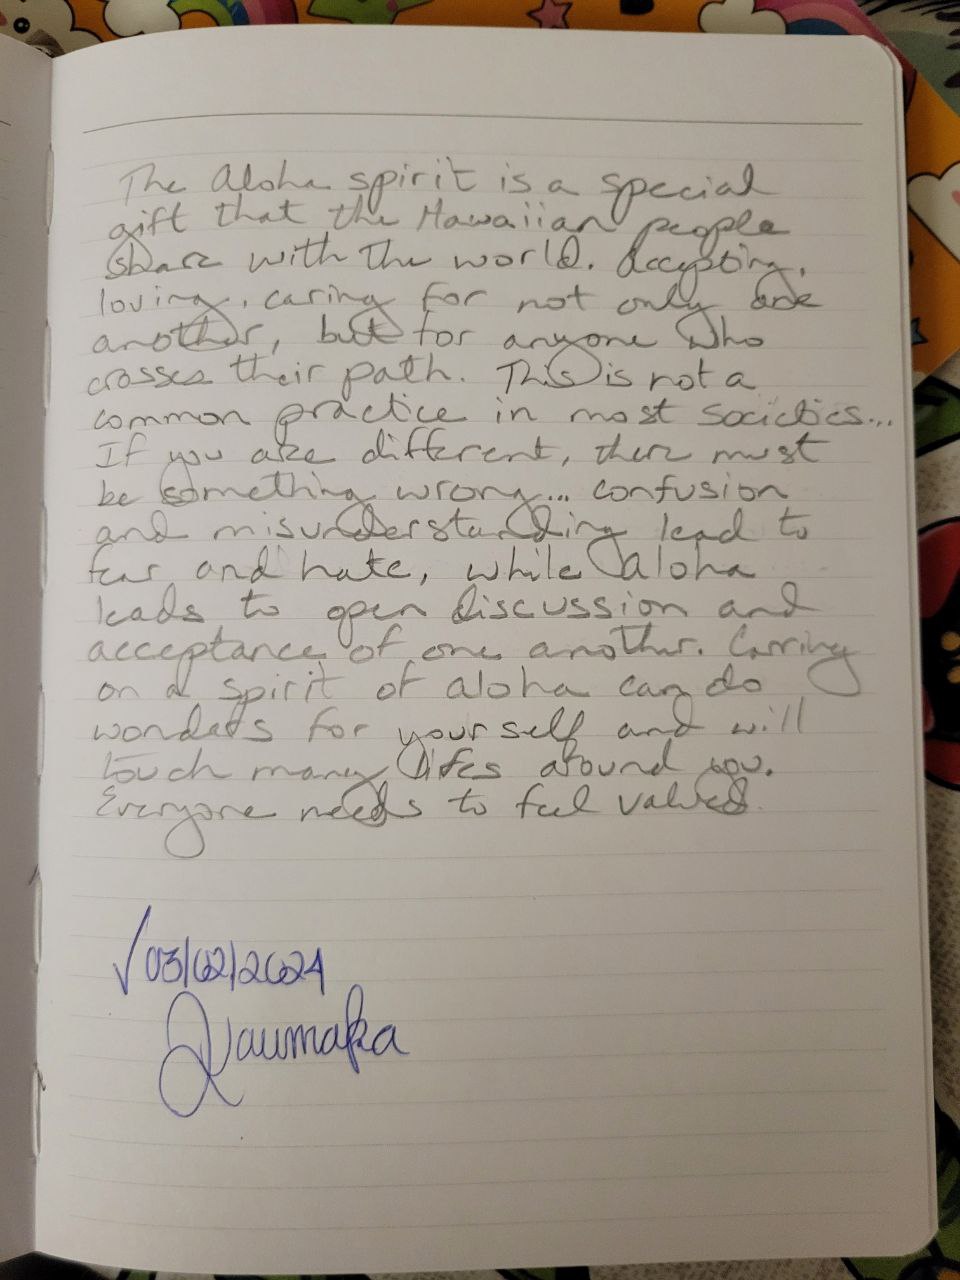 The Aloha spirit is a special
gift that the Hawaiian people
share with the world. Accepting,
loving, caring for not only one
another, but for anyone who
crosses their path. This is not a
common practice in most societies...
If you are different, there must
be something wrong... confusion
and misunderstanding lead to
fear and hate, while aloha
leads to open discussion and
acceptance of one another. Carrying
on a spirit of aloha can do
wonders for yourself and will
touch many lifes around you.
Everyone needs to feel valued.
√03/02/2024
Kaumaka